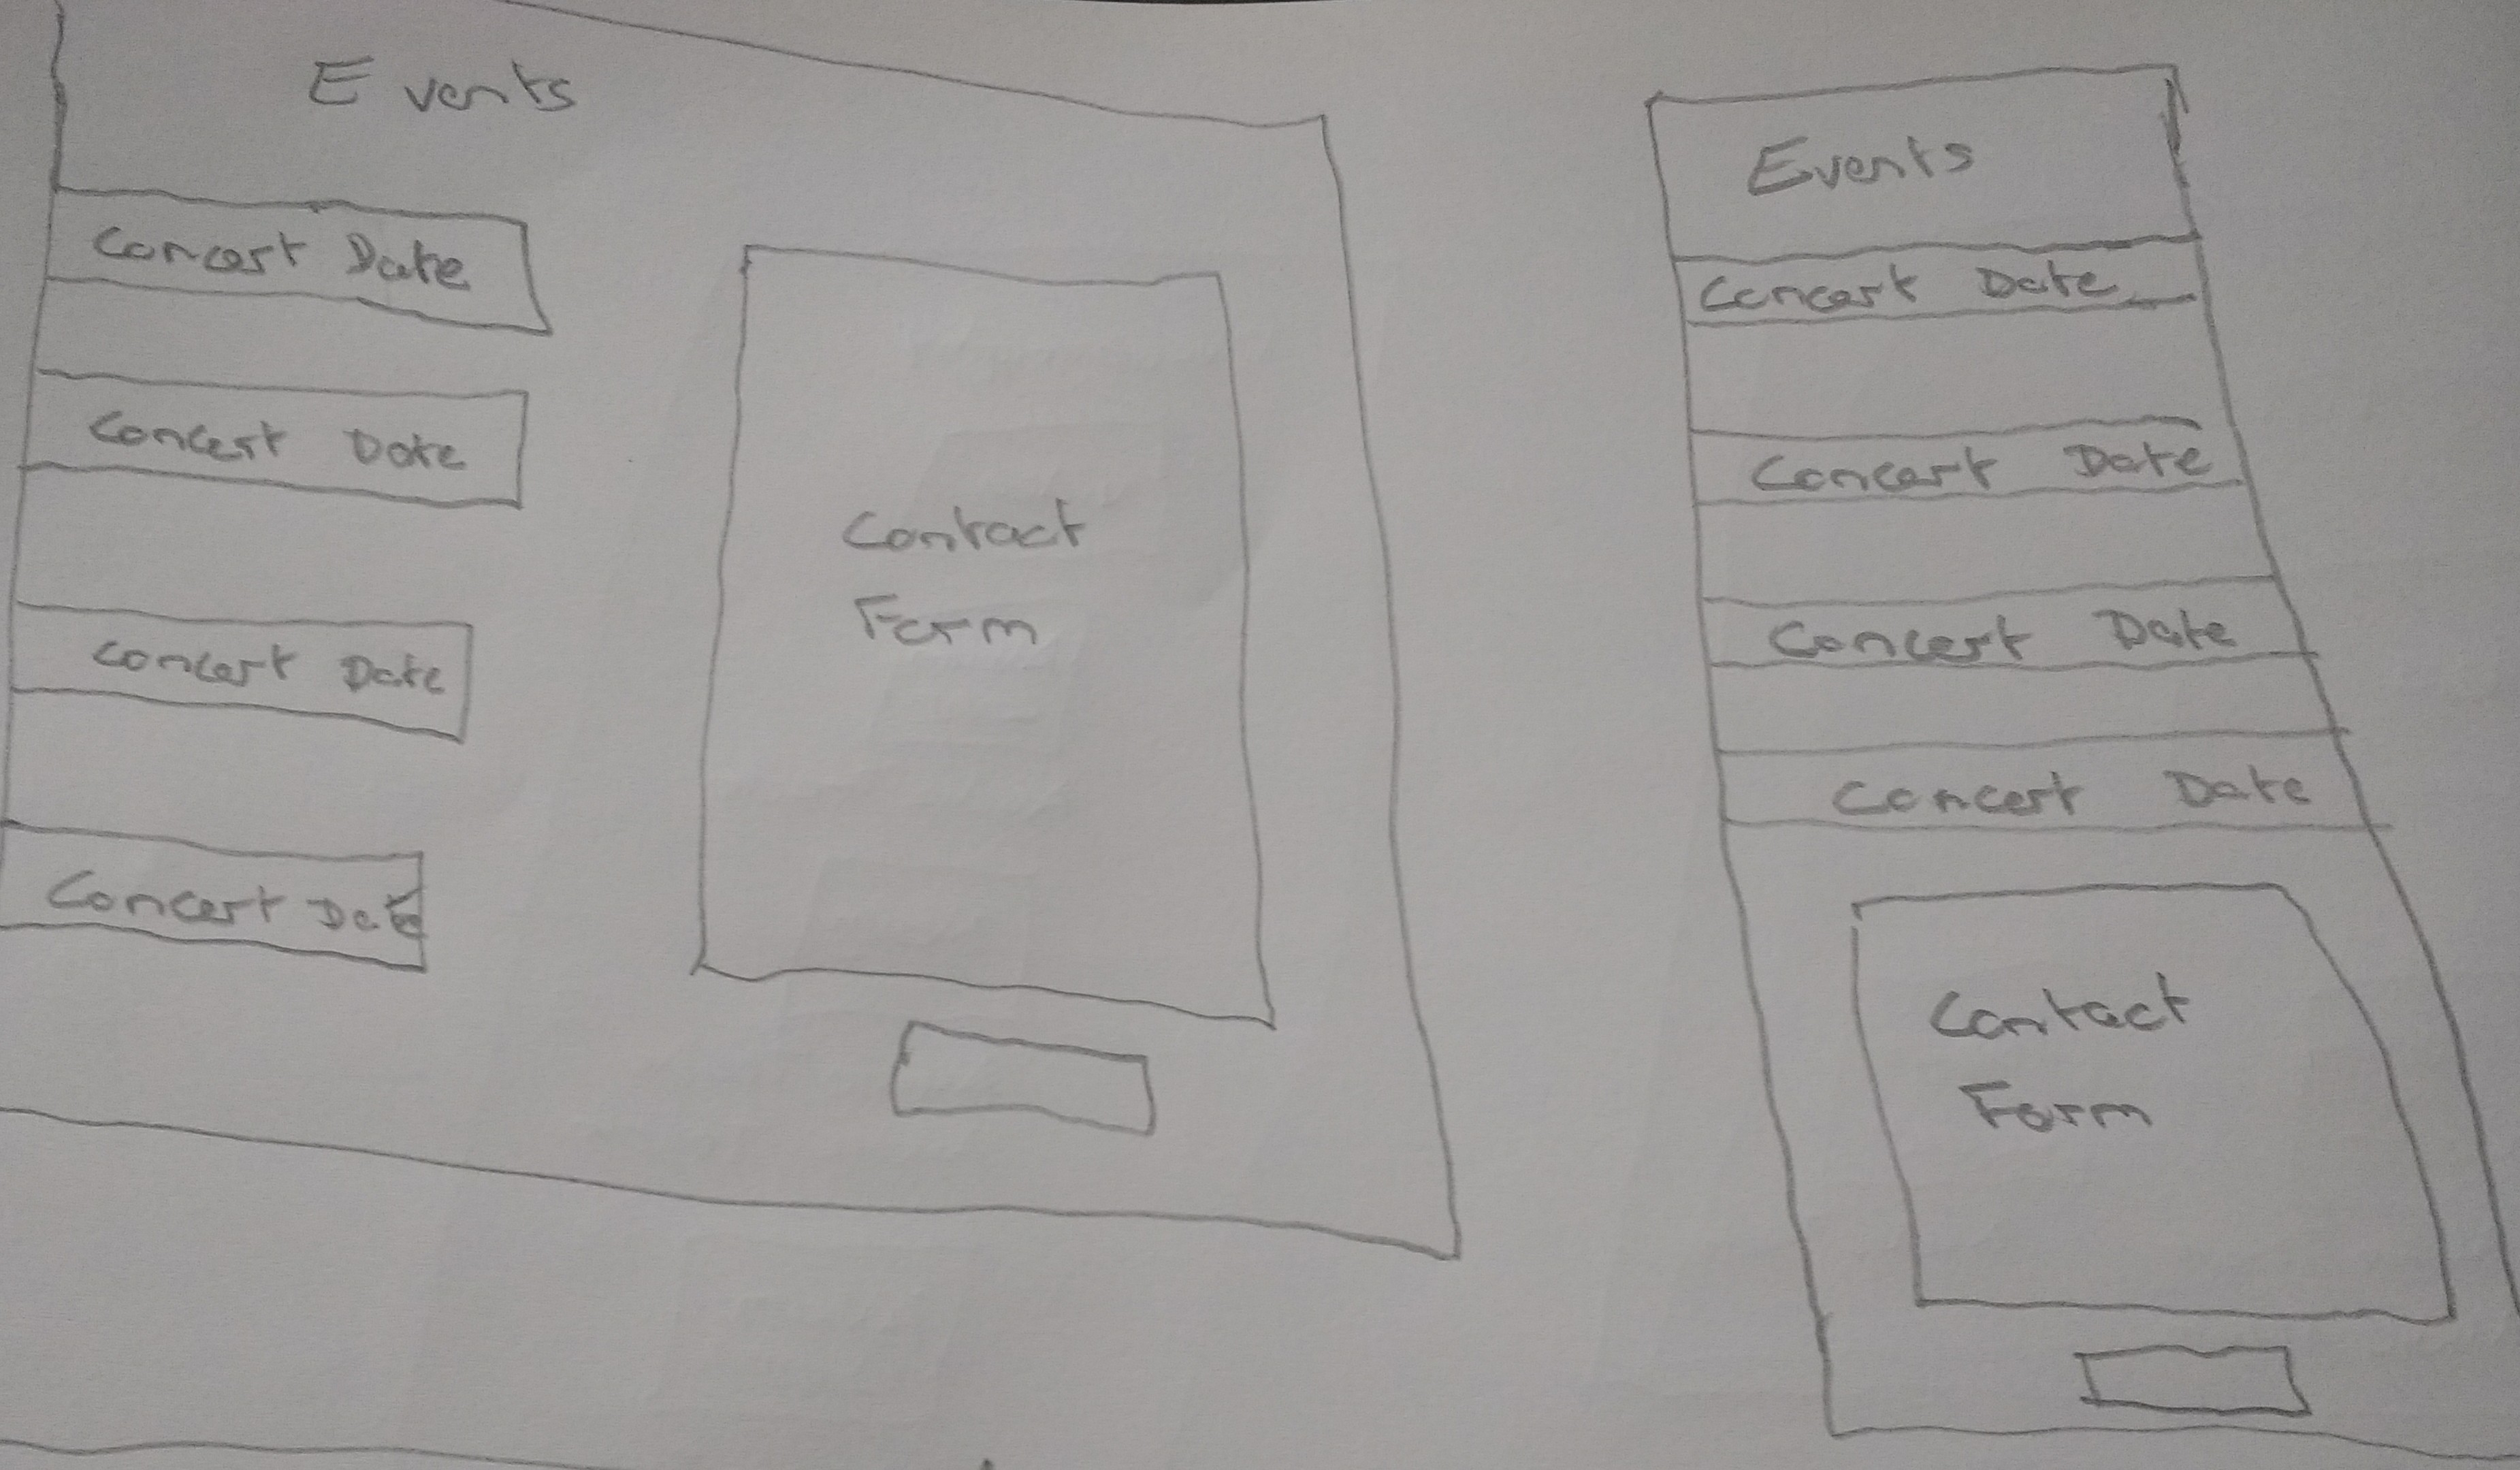 Events
Concert Date
Concert Date
Concert Date
Concert Date
Contact
Form
Events
Concert Date
Concert Date
Concert Date
Concert Date
Contact
Form